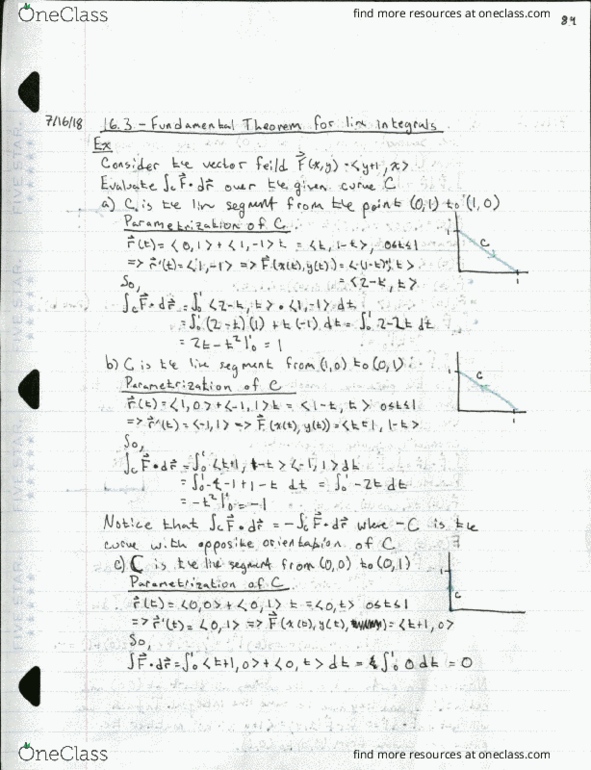 OneClass
find more resources at oneclass.com
84
7/16/18 16.3 - Fundamental Theorem for line integrals
Ex
Consider the vector feild F⃗(x,y) = <y+1, x>
Evaluate ∫c F⃗•dr⃗ over the given curve C
a) C is the line segment from the point (0,1) to (1,0)
Parametrization of C
r⃗(t) = <0,1> + <1,-1>t = <t, 1-t>, 0≤t≤1
=> r⃗'(t) = <1,-1> => F⃗(x(t), y(t)) = <(1-t)+1, t>
So, = <2-t, t>
∫c F⃗•dr⃗ = ∫₀¹ <2-t, t> • <1,-1> dt
= ∫₀¹ (2-t)(1) + t(-1) dt = ∫₀¹ 2-2t dt
= 2t - t² |₀¹ = 1
C
1
1
b) C is the line segment from (1,0) to (0,1)
Parametrization of C
r⃗(t) = <1,0> + <-1,1>t = <1-t, t> 0≤t≤1
=> r⃗'(t) = <-1,1> => F⃗(x(t), y(t)) = <t+1, 1-t>
So,
∫c F⃗•dr⃗ = ∫₀¹ <t+1, 1-t> <-1,1> dt
= ∫₀¹ -t-1+1-t dt = ∫₀¹ -2t dt
= -t² |₀¹ = -1
C
1
1
Notice that ∫c F⃗•dr⃗ = -∫c F⃗•dr⃗ where -C is the
curve with opposite orientation of C
c) C is the line segment from (0,0) to (0,1)
Parametrization of C
r⃗(t) = <0,0> + <0,1>t = <0,t> 0≤t≤1
=> r⃗'(t) = <0,1> => F⃗(x(t), y(t)) = <t+1, 0>
So,
∫F⃗•dr⃗ = ∫₀¹ <t+1, 0> + <0, t> dt = ∫₀¹ 0 dt = 0
1
C
OneClass
find more resources at oneclass.com